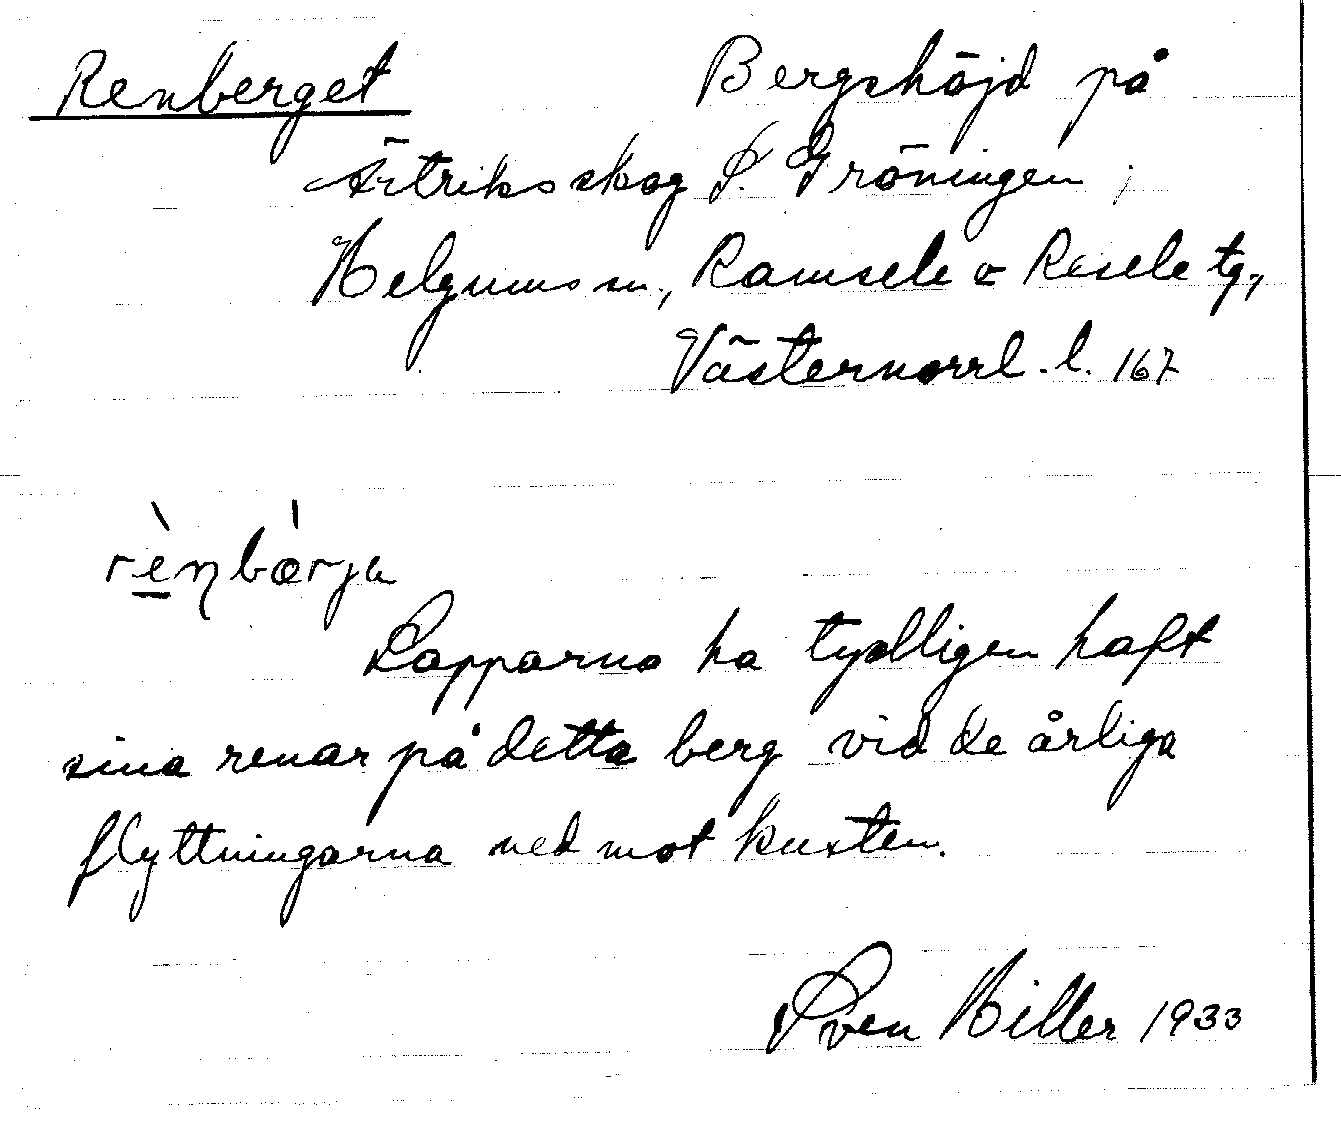 Renberget Bergshöjd på
Ärtriks skog S. Gröningen,
Helgums sn., Ramsele o Resele tg.,
Västernorrl. l. 167
rènbærja
Lapparna ha tydligen haft
sina renar på detta berg vid de årliga
flyttningarna ned mot kusten.
Sven Hiller 1933